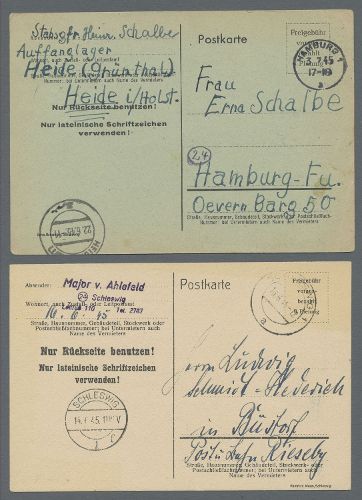 Stabsgfr. Heinr. Schalbe
Auffanglager
Heide (Grünthal)
Heide i/Holst.
Nur Rückseite benutzen!
Nur lateinische Schriftzeichen
verwenden!
Postkarte
Freigebühr
HAMBURG 1
17-18
a
Frau
Erna Schalbe
24
Hamburg-Fu.
Oevern Barg 50
Straße, Hausnummer, Gebäudeteil, Stockwerk oder Postschließfach-
Nummer, bei Untermietern auch Name des Vermieters
Absender:
Major v. Ahlefeld
Schleswig
Tel. 2763
Wohnort, auch Zustell- oder Leitpostamt
16. 6. 45
Straße, Hausnummer, Gebäudeteil, Stockwerk oder
Postschließfachnummer; bei Untermietern auch
Name des Vermieters
Nur Rückseite benutzen!
Nur lateinische Schriftzeichen
verwenden!
SCHLESWIG
Postkarte
Freigebühr
voraus-
bezahlt
Pfennig
Herrn Ludwig
in Büstorf
Post u. Bahn Rieseby
Straße, Hausnummer, Gebäudeteil, Stockwerk oder
Postschließfachnummer; bei Untermietern auch
Name des Vermieters